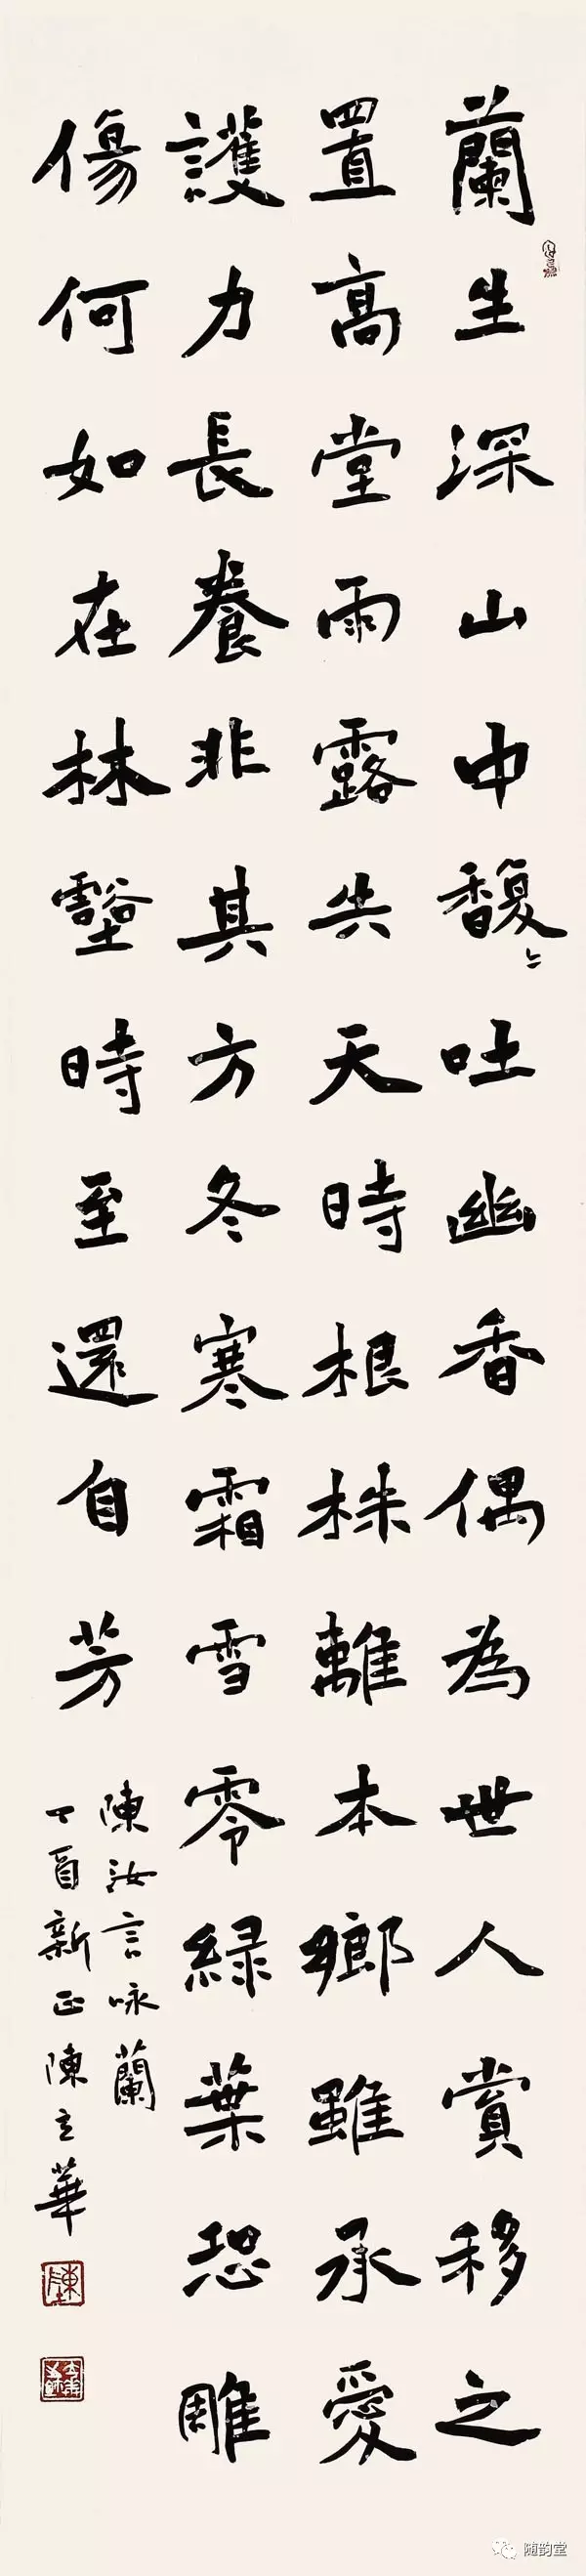 蘭生深山中馥〻吐幽香偶為世人賞移之
置高堂雨露失天時根株離本鄉雖承愛
護力長養非其方冬寒霜雪零綠葉恐雕
傷何如在林壑時至還自芳
陳汝言咏蘭
丁酉新正陳立華
随韵堂